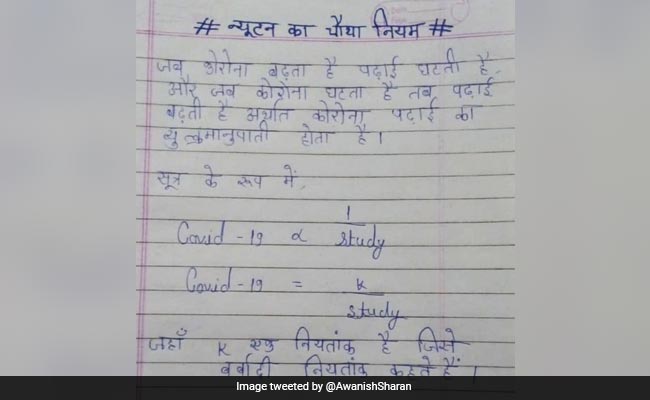 # न्यूटन का चौथा नियम #
जब कोरोना बढ़ता है पढ़ाई घटती है,
और जब कोरोना घटता है तब पढ़ाई
बढ़ती है अर्थात कोरोना पढ़ाई का
व्युत्क्रमानुपाती होता है।
सूत्र के रूप में,
Covid-19 ∝ 1/study
Covid-19 = k/study
जहाँ k एक नियतांक है जिसे
बर्बादी नियतांक कहते हैं।
Image tweeted by @AwanishSharan